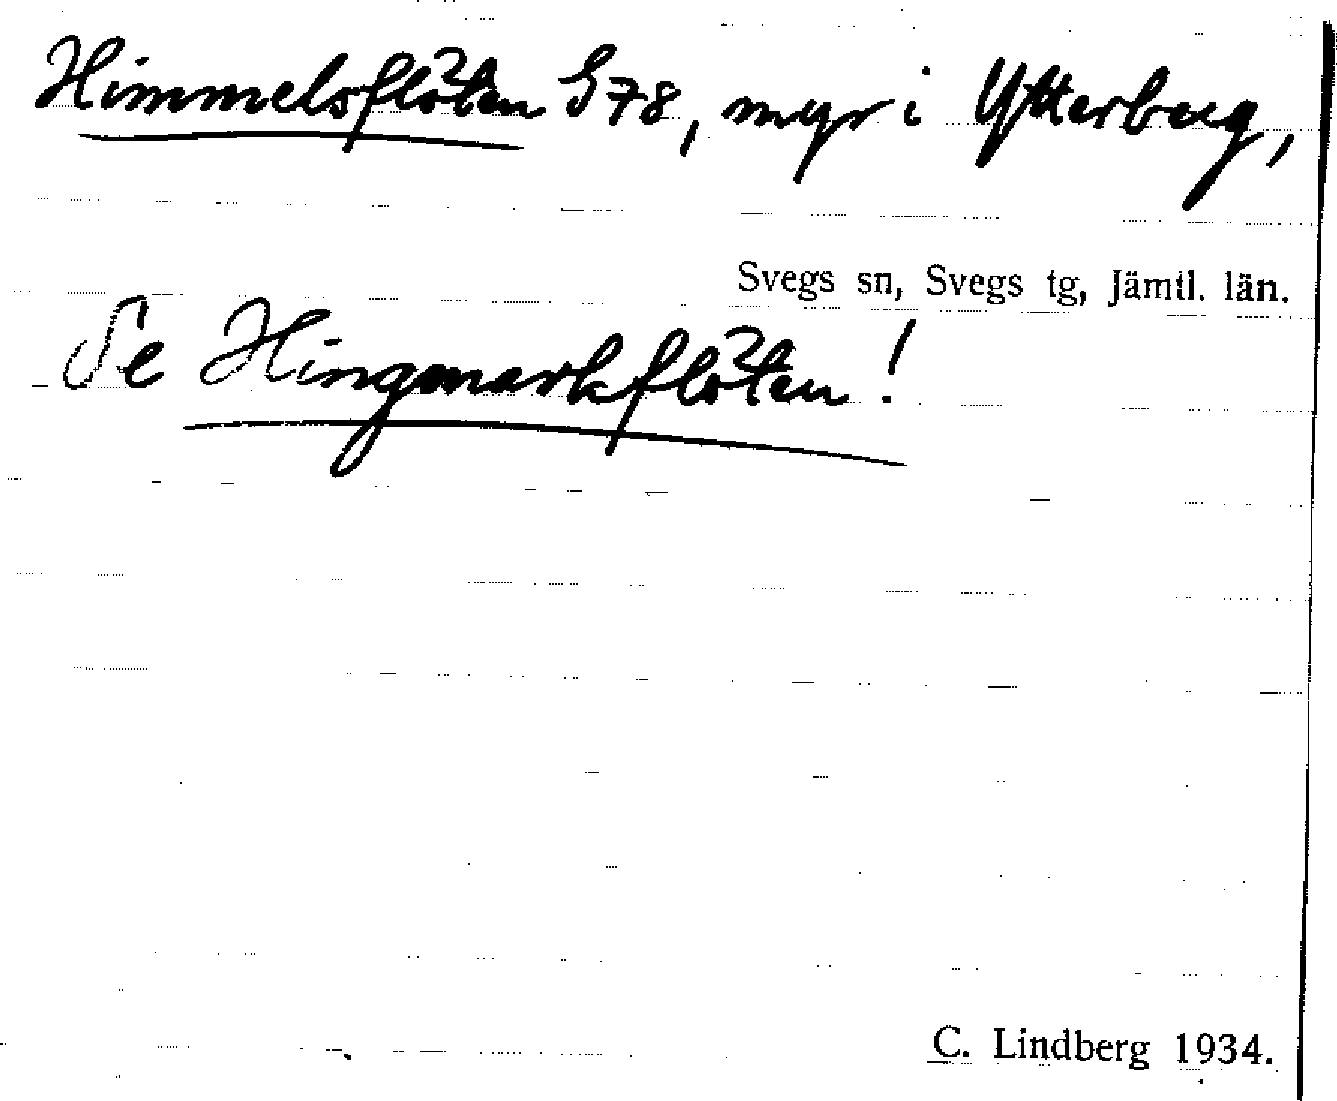 Himmelsflöten G78, myr i Ytterberg,
Svegs sn, Svegs tg, Jämtl. län.
Se Hingmarkflöten!
C. Lindberg 1934.